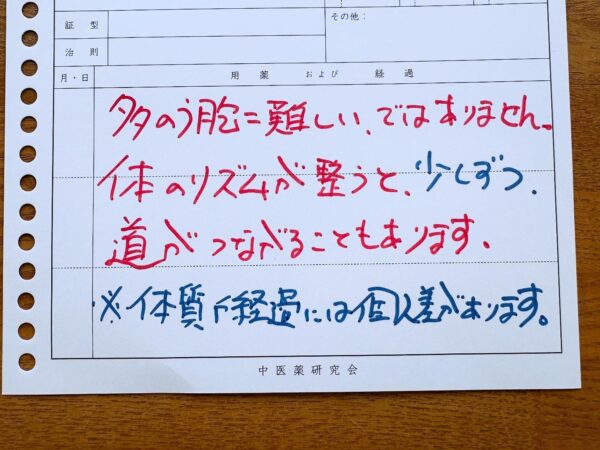 その他：
証型
治則
月・日 用薬 および 経過
多のう胞＝難しい、ではありません。
体のリズムが整うと、少しずつ、
道がつながることもあります。
※体質や経過には個人差があります。
中医薬研究会